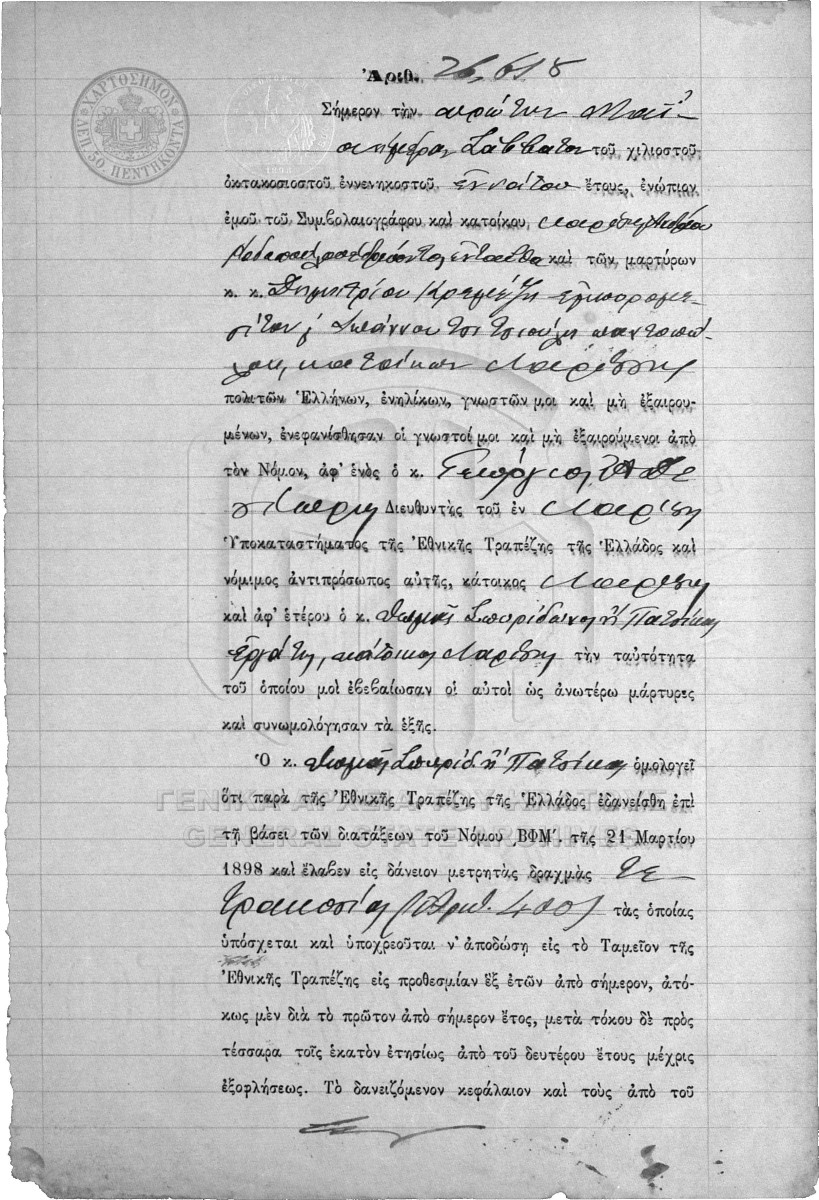 ΧΑΡΤΟΣΗΜΟΝ
ΛΕΠ. 50. ΠΕΝΤΗΚΟΝΤΑ
Ἀριθ. 26,618
Σήμερον τὴν πρώτην Μαΐ-
ου ἡμέραν Σάββατον τοῦ χιλιοστοῦ
ὀκτακοσιοστοῦ ἐννενηκοστοῦ ἐννάτου ἔτους, ἐνώπιον
ἐμοῦ τοῦ Συμβολαιογράφου καὶ κατοίκου Λαρίσης
ἐνταῦθα καὶ τῶν μαρτύρων
κ. κ. Δημητρίου
Ἰωάννου παντοπώ-
λου, κατοίκων Λαρίσσης
πολιτῶν Ἑλλήνων, ἐνηλίκων, γνωστῶν μοι καὶ μὴ ἐξαιρου-
μένων, ἐνεφανίσθησαν οἱ γνωστοί μοι καὶ μὴ ἐξαιρούμενοι ἀπὸ
τὸν Νόμον, ἀφ' ἑνὸς ὁ κ. Γεώργιος
Διευθυντὴς τοῦ ἐν Λαρίσῃ
Ὑποκαταστήματος τῆς Ἐθνικῆς Τραπέζης τῆς Ἑλλάδος καὶ
νόμιμος ἀντιπρόσωπος αὐτῆς, κάτοικος Λαρίσης
καὶ ἀφ' ἑτέρου ὁ κ. Θωμᾶς Σπυρίδωνος ἢ Πατσίκας
ἐργάτης, κάτοικος Λαρίσης τὴν ταὐτότητα
τοῦ ὁποίου μοὶ ἐβεβαίωσαν οἱ αὐτοὶ ὡς ἀνωτέρω μάρτυρες
καὶ συνωμολόγησαν τὰ ἑξῆς.
Ὁ κ. Θωμᾶς Σπυρίδ ἢ Πατσίκας ὁμολογεῖ
ὅτι παρὰ τῆς Ἐθνικῆς Τραπέζης τῆς Ἑλλάδος ἐδανείσθη ἐπὶ
ΓΕΝΙΚΑ ΑΡΧΕΙΑ ΤΟΥ ΚΡΑΤΟΥΣ
GENERAL STATE ARCHIVES
τῇ βάσει τῶν διατάξεων τοῦ Νόμου ͵ΒΦΜʹ. τῆς 21 Μαρτίου
1898 καὶ ἔλαβεν εἰς δάνειον μετρητὰς δραχμὰς τε-
τρακοσίας (ἀριθ. 400) τὰς ὁποίας
ὑπόσχεται καὶ ὑποχρεοῦται ν' ἀποδώσῃ εἰς τὸ Ταμεῖον τῆς
Ἐθνικῆς Τραπέζης εἰς προθεσμίαν ἓξ ἐτῶν ἀπὸ σήμερον, ἀτό-
κως μὲν διὰ τὸ πρῶτον ἀπὸ σήμερον ἔτος, μετὰ τόκου δὲ πρὸς
τέσσαρα τοῖς ἑκατὸν ἐτησίως ἀπὸ τοῦ δευτέρου ἔτους μέχρις
ἐξοφλήσεως. Τὸ δανειζόμενον κεφάλαιον καὶ τοὺς ἀπὸ τοῦ